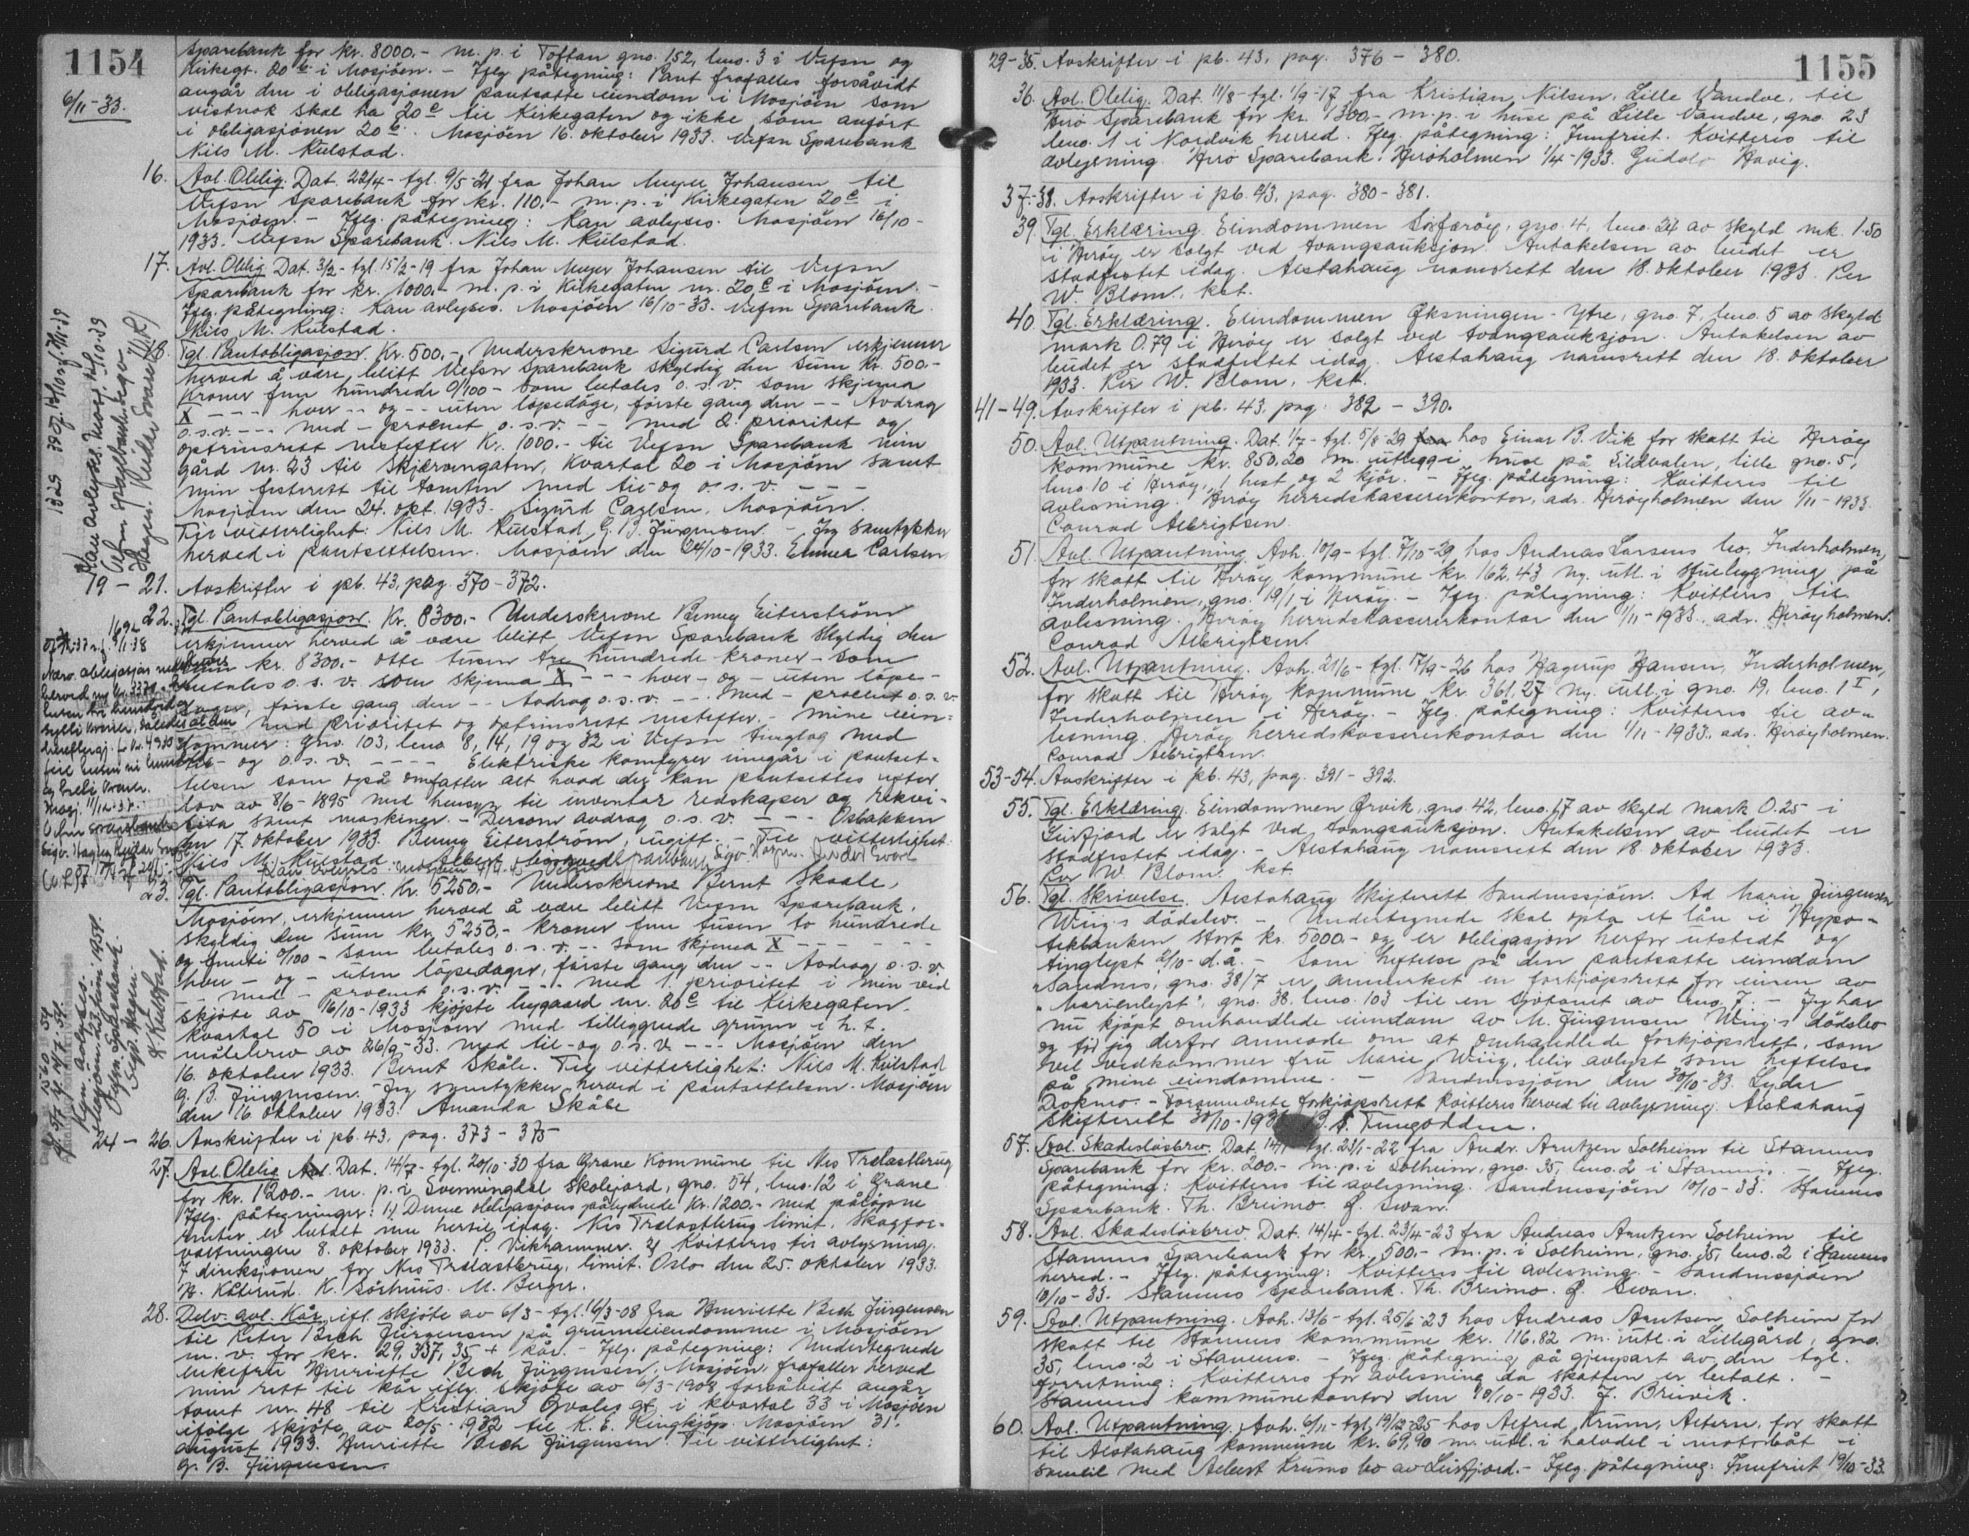 1154
6/11-33.
Sparebank for kr. 8000.- m. p. i Toftan gno. 152, bno. 3 i Vefsn og
Kirkegt. 20 b i Mosjøen. - Iflg påtegning: Pant frafalles forsåvidt
angår den i obligasjonen pantsatte eiendom i Mosjøen som
vistnok skal ha 20 c til Kirkegaten og ikke som anført
i obligasjonen 20 b. Mosjøen 16. oktober 1933. Vefsn Sparebank
Nils M. Kulstad.
16. Avl. Oblig. Dat. 22/4 - tgl. 9/5-21 fra Johan Meyer Johansen til
Vefsn Sparebank for kr. 110.- m. p. i Kirkegaten 20 c i
Mosjøen. - Iflg. påtegning: Kan avlyses. Mosjøen 16/10-
1933. Vefsn Sparebank. Nils M. Kulstad.
17. Avl. Oblig. Dat. 3/2 - tgl. 15/2-19 fra Johan Meyer Johansen til Vefsn
Sparebank for kr. 1000.- m. p. i Kirkegaten nr. 20 c i Mosjøen. -
Iflg. påtegning: Kan avlyses. Mosjøen 16/10-33. Vefsn Sparebank.
Nils M. Kulstad.
18. Tgl. Pantobligasjon. Kr. 500.- Underskrevne Sigurd Carlsen erkjenner
herved å være blitt Vefsn Sparebank skyldig den sum kr. 500.-
kroner fem hundrede 0/100 - som betales o.s.v. som skjema
X - - - hver - - og - - uten løpedage, første gang den - - Avdrag
o.s.v. - - - med - procent o.s.v. - - med 2. prioritet og
optrinsrett nestefter kr. 1000.- til Vefsn Sparebank min
gård nr. 23 til Skjærvengaten, Kvartal 20 i Mosjøen samt
min festerett til tomten med til- og o.s.v. - - -
Mosjøen den 24. okt. 1933. Sigurd Carlsen, Mosjøen.
Til vitterlighet: Nils M. Kulstad, G. B. Jürgensen - Jeg samtykker
herved i pantsettelsen. Mosjøen den 24/10-1933. Emma Carlsen
19 - 21. Avskrifter i pb. 43, pag. 370-372.
22. Tgl. Pantobligasjon. Kr. 8300.- Underskrevne Benny Eiterstrøm
erkjenner herved å være blitt Vefsn Sparebank skyldig den
sum kr. 8300.- otte tusen tre hundrede kroner - som
betales o.s.v. som skjema X - - - hver - og - uten løpe-
dager, første gang den - - Avdrag o.s.v. - - - med - procent o.s.v.
med prioritet og optrinsrett nestefter. - mine eien-
dommer: gno. 103, bno. 8, 14, 19 og 32 i Vefsn tinglag med
til- og o.s.v. - - - - Elektriske komfyrer inngår i pantset-
telsen som også omfatter alt hvad der kan pantsettes efter
lov av 8/6-1895 med hensyn til inventar redskaper og rekvi-
sita samt maskiner. - Dersom avdrag o.s.v. - - - Osbakken
den 17. oktober 1933. Benny Eiterstrøm, ugift. - Til vitterlighet:
Nils M. Kulstad.
23. Tgl. Pantobligasjon. Kr. 5250.- Underskrevne Bernt Skaale,
Mosjøen, erkjenner herved å være blitt Vefsn Sparebank,
skyldig den sum kr. 5250.- kroner fem tusen to hundrede
og femti 0/100 - som betales o.s.v. - - som skjema X - - - - - -
hver - og - uten løpedager, første gang den - - Avdrag o.s.v.
- - med - procent o.s.v. - - - med 1. prioritet i min ved
skjøte av 16/10-1933 kjøpte bygaard nr. 20 c til Kirkegaten.
kvartal 50 i Mosjøen med tilleggende grunn i h. t.
målebrev av 26/9-33. med til- og o.s.v. - - - Mosjøen den
16. oktober 1933. Bernt Skåle. Til vitterlighet: Nils M. Kulstad
G. B. Jürgensen. Jeg samtykker herved i pantsettelsen. Mosjøen
den 16 oktober 1933. Amanda Skåle
24 - 26. Avskrifter i pb. 43, pag. 373-375-
27. Avl. Oblig. Dat. 14/7 - tgl. 20/10-30 fra Grane Kommune til Nes Trelastbrug
for kr. 1200.- m. p. i Svenningdal Skolejord, gno. 54, bno. 12 i Grane.
Iflg. påtegninger: 1) Denne obligasjons pålydende kr. 1200.- med påløpne
renter er betalt mig hertil idag. Nes Trelastbrug limit. Skogfor-
valtningen 8. oktober 1933. P. Vikhammer. 2) Kvitteres til avlysning.
I direksjonen for Nes Trelastbrug, limit. Oslo den 25. oktober 1933.
K. Sørhuus. M. Berger.
28. Delv. avl. Kår ifl. skjøte av 6/3 - tgl. 16/3-08 fra Henriette Bech Jürgensen
til Peter Bech Jürgensen på grunneiendomme i Mosjøen
m. v. for kr. 29,337,35 + kår. - Iflg. påtegning: Undertegnede
enkefru Henriette Bech Jürgensen, Mosjøen, frafaller herved
min rett til kår iflg. skjøte av 6/3-1908 forsåvidt angår
tomt nr. 48 til Kristian Qvales gt, i kvartal 33 i Mosjøen
ifølge skjøte av 20/5-1932 til K. E. Ringkjøp. Mosjøen 31.
august 1933. Henriette Bech Jürgensen. Til vitterlighet:
G. B. Jürgensen.
1155
29-35. Avskrifter i pb. 43, pag. 376 - 380.
36. Avl. Oblig. Dat. 11/8 - tgl. 1/9-17 fra Kristian Nilsen, Lille Vandve, til
Herø Sparebank for kr. 1300.- m. p. i huse på Lille Vandve, gno. 23
bno. 1 i Nordvik herred. Iflg. påtegning: Innfriet. Kvitteres til
avlysning. Herø Sparebank. Herøholmen 1/4-1933. Gudolv Havig.
37-38. Avskrifter i pb. 43, pag. 380-381.
39. Tgl. Erklæring. Eiendommen Sørherøy, gno. 4, bno. 24 av skyld mk. 1.50
i Herøy er solgt ved tvangsauksjon. Antakelsen av budet er
stadfestet idag. Alstahaug namsrett den 18. oktober 1933. Per
W. Blom, kst.
40. Tgl. Erklæring. Eiendommen Øksningen - Ytre, gno. 7, bno. 5 av skyld
mark 0.79 i Herøy er solgt ved tvangsauksjon. Antakelsen av
budet er stadfestet idag. Alstahaug namsrett den 18. oktober
1933. Per W. Blom, kst.
41-49. Avskrifter i pb. 43, pag. 382 - 390.
50. Avl. Utpantning. Dat. 1/7 - tgl. 5/8-29 fra hos Einar B. Vik for skatt til Herøy
kommune kr. 850.20 m. utlegg i huse på Sildvalen, lille gno. 5,
bno. 10 i Herøy, 1 hest og 2 kjør. - Iflg. påtegning: Kvitteres til
avlesning. Herøy herredskassererkontor, adr. Herøyholmen den 1/11-1933.
Conrad Albrigtsen.
51. Avl. Utpantning. Avh. 10/9 - tgl. 7/10-29 hos Andreas Larsens bo, Inderholmen,
for skatt til Herøy kommune kr. 162.43 m. utl. i stuebygning på
Inderholmen, gno. 19/1 i Herøy. - Iflg. påtegning: Kvitteres til
avlesning. Herøy herredskassererkontor den 1/11-1933, adr. Herøyholmen.
Conrad Albrigtsen.
52. Avl. Utpantning. Avh. 21/6 - tgl. 15/9-26 hos Hagerup Hansen, Inderholmen,
for skatt til Herøy kommune kr. 361.27 m. utl. i gno. 19, bno. 1 I,
Inderholmen i Herøy. - Iflg. påtegning: Kvitteres til av-
lesning. Herøy herredskassererkontor den 1/11-1933, adr. Herøyholmen.
Conrad Albrigtsen.
53-54. Avskrifter i pb. 43, pag. 391-392.
55. Tgl. Erklæring. Eiendommen Ørvik, gno. 42, bno. 17 av skyld mark 0.25 - i
Leirfjord er solgt ved tvangsauksjon. Antakelsen av budet er
stadfestet idag. - Alstahaug namsrett den 18. oktober 1933.
Per W. Blom. kst.
56. Tgl. Skrivelse. Alstahaug Skifterett Sandnessjøen. Ad Marie Jürgensen
Wiig's dødsbo. - Undertegnede skal opta et lån i Hypo-
tekbanken stort kr. 5000.- og er obligasjon herfor utstedt og
tinglyst 2/10-d.å. - Som heftelse på den pantsatte eiendom
Sandnes, gno. 38/7 er anmerket en forkjøpsrett for eieren av
"Marienlyst", gno. 38, bno. 103 til en sjøtomt av bno. 7. - Jeg har
nu kjøpt omhandlede eiendom av M. Jürgensen Wiig's dødsbo
og tør jeg derfor anmode om at omhandlede forkjøpsrett, som
vel vedkommer fru Marie Wiig, blir avlyst som heftelse
på mine eiendomme. - Sandnessjøen den 30/10-33. Lyder
Dokmo. - Forannævnte forkjøpsrett kvitteres herved til avlysning. Alstahaug
Skifterett 30/10-193
57. Avl. Skadesløsbrev. Dat. 14/1 tgl. 23/1-22 fra Andr. Arntzen Solheim til Stamnes
Sparebank for kr. 200.- m. p. i Solheim, gno. 35, bno. 2 i Stamnes. - Iflg.
påtegning: Kvitteres til avlesning. Sandnessjøen 10/10-33. Stamnes
Sparebank. Th. Breimo. Ø. Swan.
58. Avl. Skadesløsbrev. Dat. 14/4 - tgl. 23/4-23 fra Andreas Arntzen Solheim til
Stamnes Sparebank for kr. 500.- m. p. i Solheim, gno. 35, bno. 2 i Stamnes
herred. - Iflg. påtegning: Kvitteres til avlesning. - Sandnessjøen
10/10-33. Stamnes Sparebank. Th. Breimo. Ø. Swan.
59. Avl. Utpantning. Avh. 13/6 - tgl. 25/6-23 hos Andreas Arntsen Solheim for
skatt til Stamnes kommune kr. 116.82 m. utl. i Lillegård, gno.
35, bno. 2 i Stamnes. - Iflg. påtegning på gjenpart av den tgl.
forretning: Kvitteres for avlesning da skatten er betalt. -
Stamnes kommunekontor den 10/10-1933. J. Breivik.
60. Avl. Utpantning. Avh. 6/11 - tgl. 19/12-25 hos Alfred Krum, Altern, for skatt
til Alstahaug kommune kr. 69,90 m. utl. i halvdel i motorbåt i
sameie med Albert Krums bo av Leirfjord. - Iflg. påtegning: Innfriet 19/10-33.